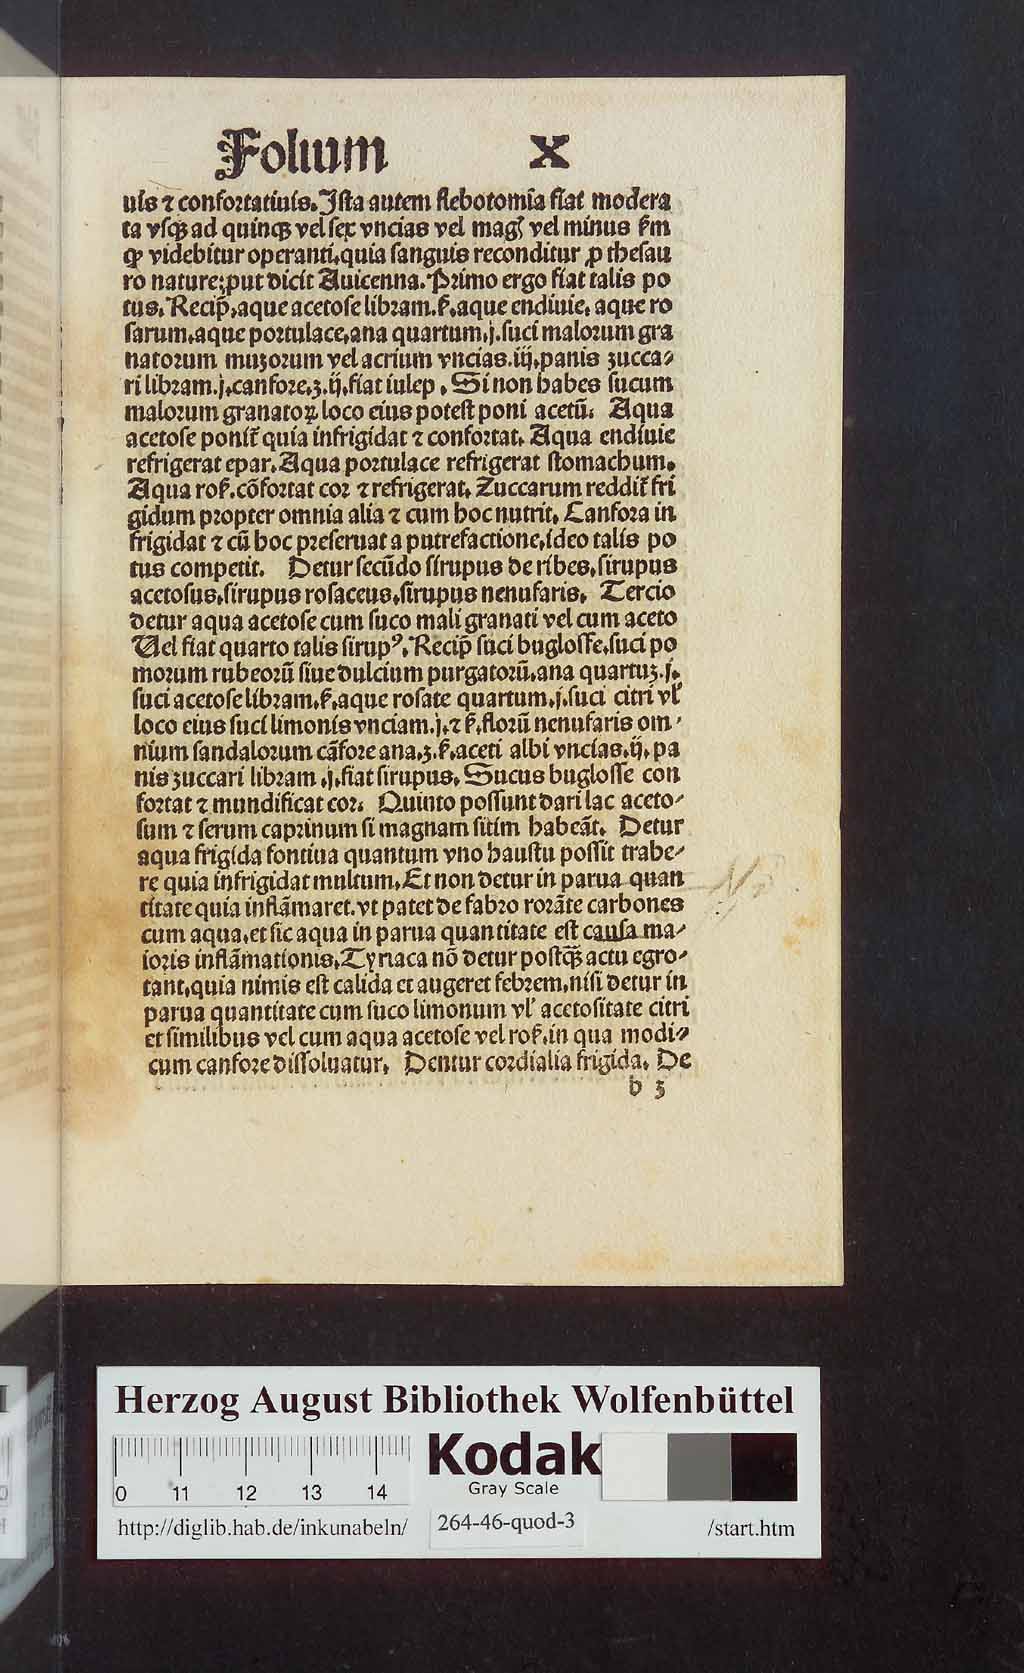 Folium X
uis ⁊ confortatiuis. Ista autem flebotomia fiat modera
ta vsqꝫ ad quinqꝫ vel sex vncias vel mag̉ vel minus ẜm
ꝙ videbitur operanti, quia sanguis reconditur ꝓ thesau
ro nature, ꝓut dicit Auicenna. Primo ergo fiat talis po
tus. Recip̄, aque acetose libram. ẜ. aque endiuie, aque ro
sarum, aque portulace, ana quartum. j. suci malorum gra
natorum muzorum vel acrium vncias. iij. panis zucca⸗
ri libram. j. canfore. ʒ. ij. fiat iulep. Si non habes sucum
malorum granatoꝝ loco eius potest poni acetū. Aqua
acetose ponit̄ quia infrigidat ⁊ confortat. Aqua endiuie
refrigerat epar. Aqua portulace refrigerat stomachum.
Aqua roẜ. cōfortat cor ⁊ refrigerat. Zuccarum reddit̄ fri
gidum propter omnia alia ⁊ cum hoc nutrit. Canfora in
frigidat ⁊ cū hoc preseruat a putrefactione, ideo talis po
tus competit. Detur secūdo sirupus de ribes, sirupus
acetosus, sirupus rosaceus, sirupus nenufaris. Tercio
detur aqua acetose cum suco mali granati vel cum aceto
Uel fiat quarto talis sirupꝰ. Recip̄ suci buglosse, suci po
morum rubeorū siue dulcium purgatorū, ana quartuꝫ. j.
suci acetose libram. ẜ. aque rosate quartum. j. suci citri vl̓
loco eius suci limonis vnciam. j. ⁊ ẜ. florū nenufaris om⸗
nium sandalorum cāfore ana. ʒ. ẜ. aceti albi vncias. ij. pa
nis zuccari libram. j. fiat sirupus. Sucus buglosse con
fortat ⁊ mundificat cor. Quinto possunt dari lac aceto⸗
sum ⁊ serum caprinum si magnam sitim habeāt. Detur
aqua frigida fontiua quantum vno haustu possit trahe⸗
re quia infrigidat multum. Et non detur in parua quan
titate quia inflāmaret. vt patet de fabro rorāte carbones
cum aqua, et sic aqua in parua quantitate est causa ma⸗
ioris inflāmationis. Tyriaca nō detur postqꝫ actu egro⸗
tant, quia nimis est calida et augeret febrem, nisi detur in
parua quantitate cum suco limonum vl̓ acetositate citri
et similibus vel cum aqua acetose vel roẜ. in qua modi⸗
cum canfore dissoluatur. Dentur cordialia frigida. De
b 3
Herzog August Bibliothek Wolfenbüttel
Kodak
Gray Scale
0 11 12 13 14
http://diglib.hab.de/inkunabeln/ 264-46-quod-3 /start.htm